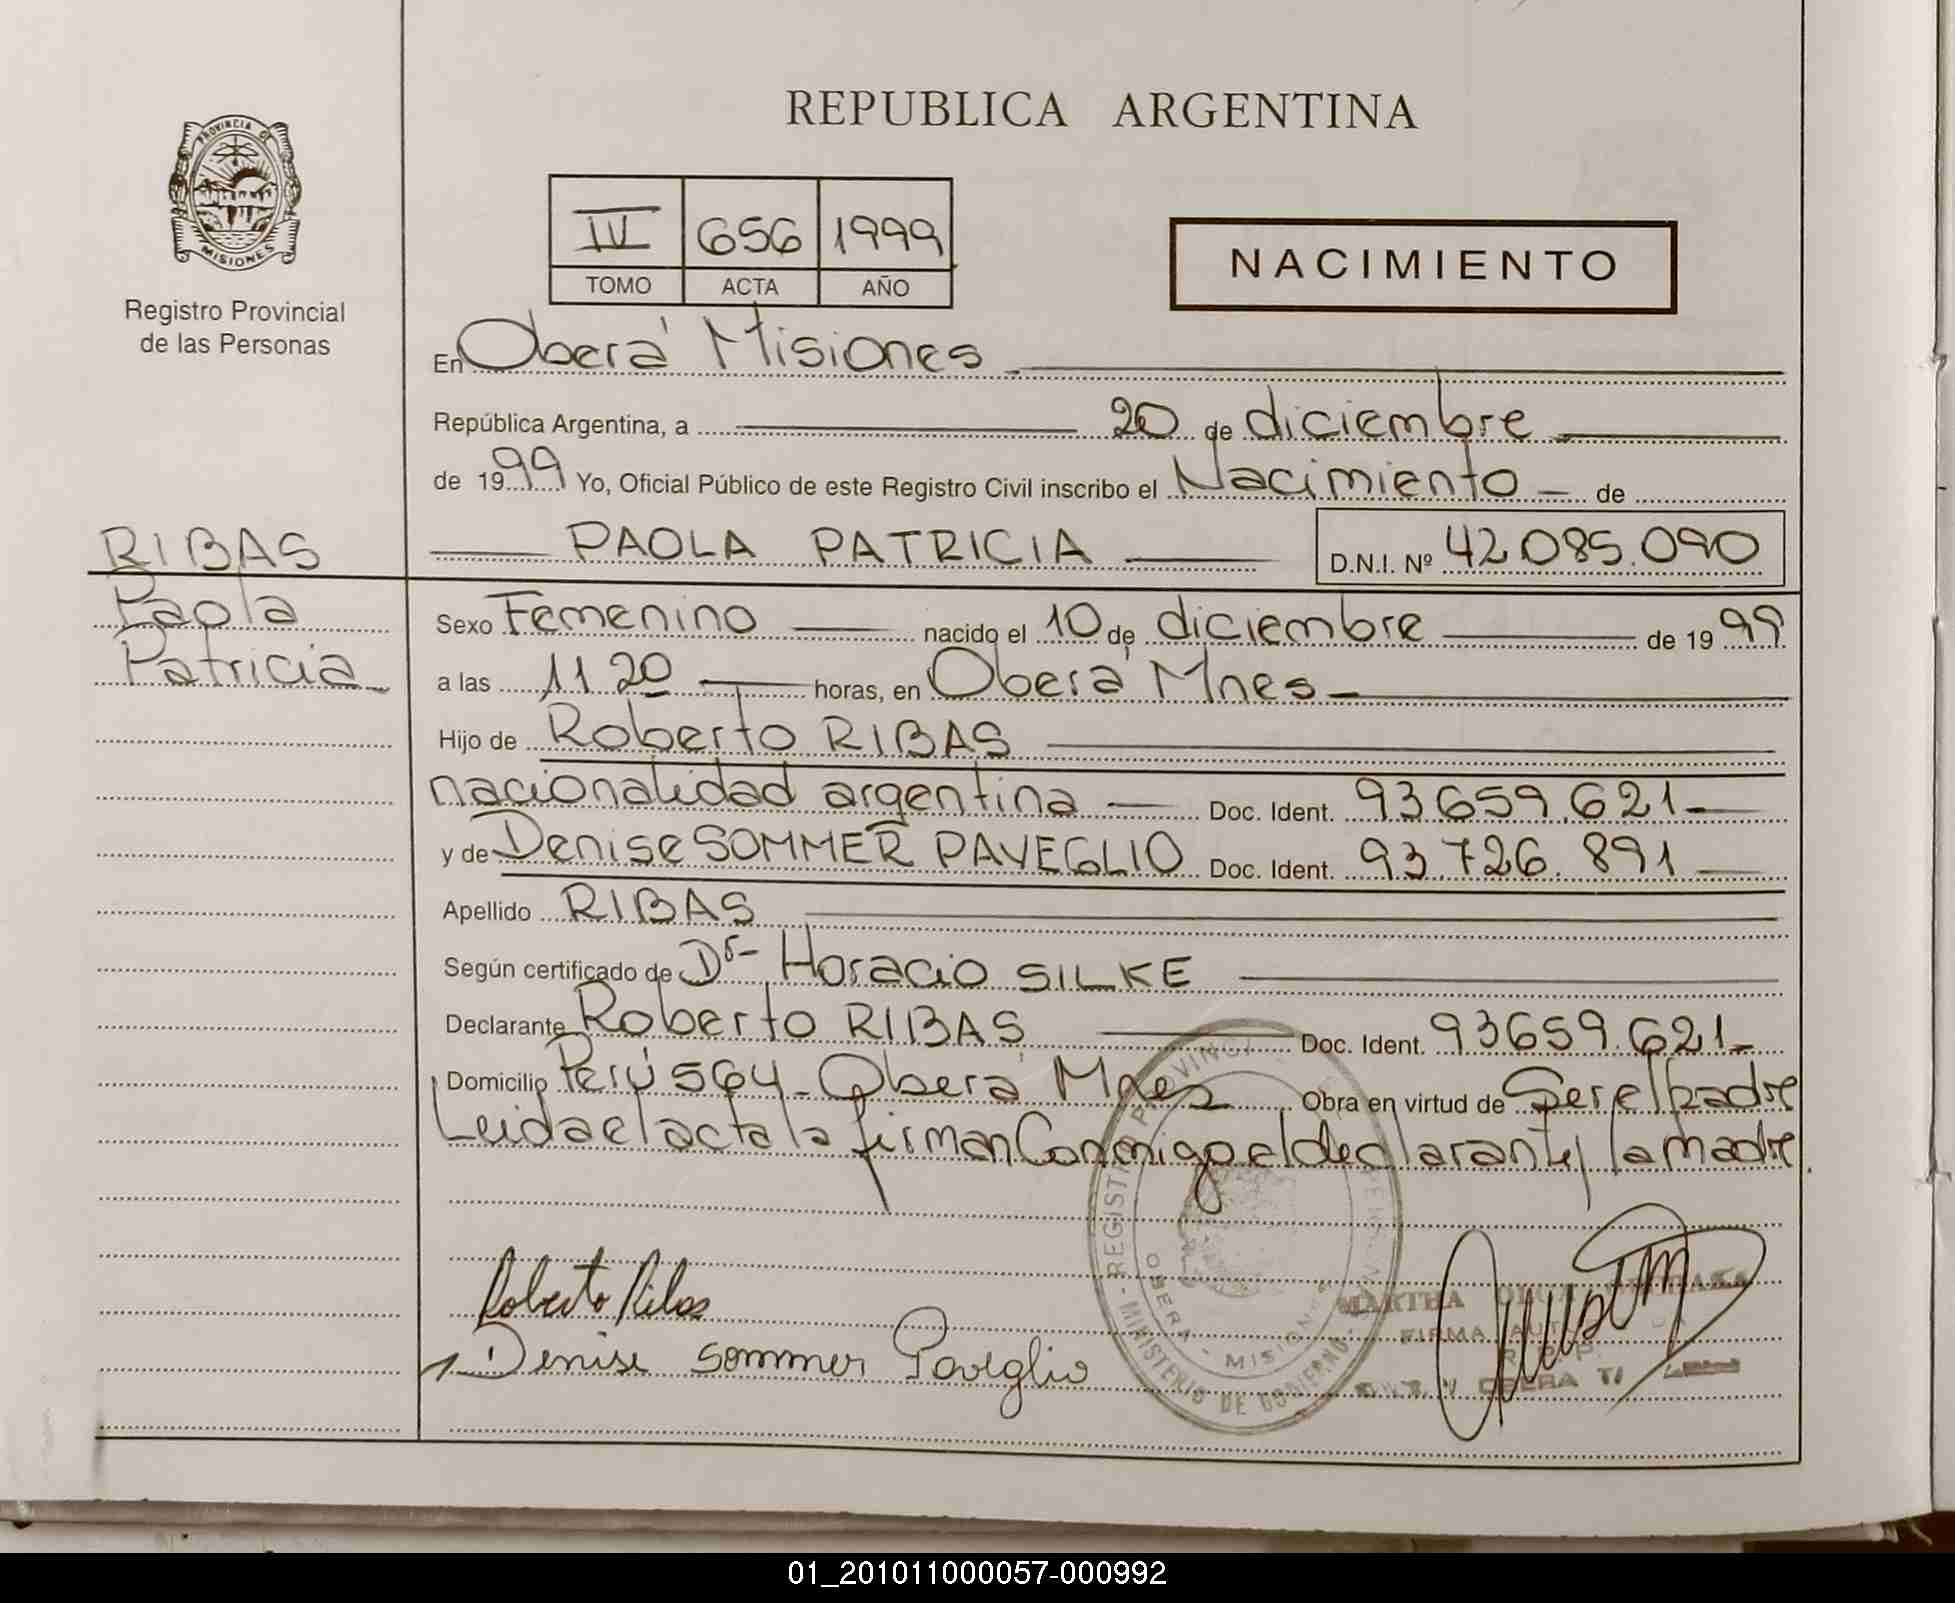 REPUBLICA ARGENTINA
PROVINCIA D
MISIONES
Registro Provincial
de las Personas
IV 656 1999
TOMO ACTA AÑO
NACIMIENTO
En Oberá Misiones
República Argentina, a 20 de diciembre
de 1999 Yo, Oficial Público de este Registro Civil inscribo el Nacimiento de
RIBAS
Paola
Patricia
PAOLA PATRICIA D.N.I. Nº 42.085.090
Sexo Femenino nacido el 10 de diciembre de 1999
a las 11 20 horas, en Oberá Mnes
Hijo de Roberto RIBAS
nacionalidad argentina Doc. Ident. 93659.621
y de Denise SOMMER PAVEGLIO Doc. Ident. 93.726.891
Apellido RIBAS
Según certificado de Dr Horacio SILKE
Declarante Roberto RIBAS Doc. Ident. 93659.621
Domicilio Perú 564 Oberá Mnes Obra en virtud de Ser el padre
Leida el acta la firman Conmigo el declarante y la madre.
Roberto Ribas
Denise Sommer Paveglio
OBERA - MISIONES
MINISTERIO DE GOBIERNO
MARTHA OLGA
FIRMA AUT
OBERA
01_201011000057-000992